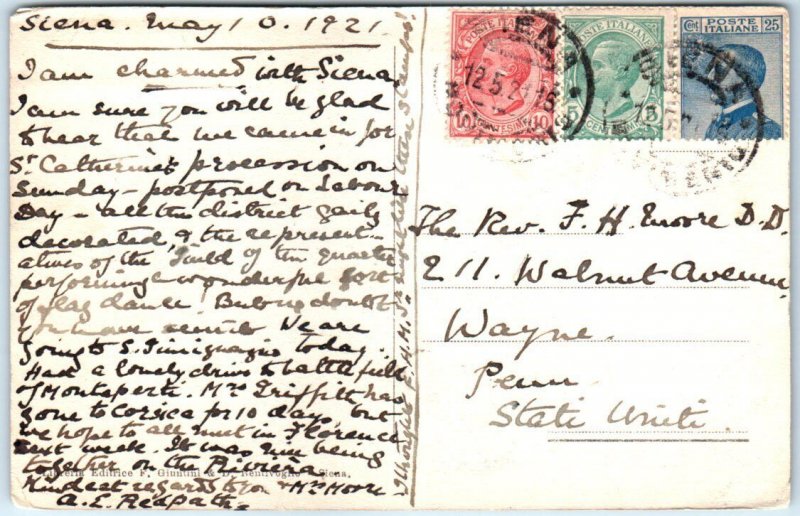 Siena. May 10. 1921
I am charmed with Siena
I am sure you will be glad
to hear that we came in for
St Catherine's procession on
Sunday - postponed on Labour
Day - all the district gaily
decorated, & the represent-
atives of the Guild of the
performing a wonderful sort
of flag dance. But no doubt
you have seen it. We are
going to S. Gimignano today.
Had a lovely drive to battlefield
of Montaperti. Mrs Griffith has
gone to Corsica for 10 days, but
we hope to all meet in Florence
next week. It was nice being
together on the Riviera.
Editrice F. Giuntini & D. Bentivoglio - Siena.
Kindest regards to you & Mrs Moore
A. E. Redpath.
I thought F. H. M. Jr might like these stamps!
POSTE ITALIANE
10
CENTESIMI
POSTE ITALIANE
5
CENTESIMI
Cent POSTE 25
ITALIANE
SIENA
12.5.21.15
The Rev. F. H. Moore D.D.
211. Walnut Avenue,
Wayne.
Penn.
Stati Uniti